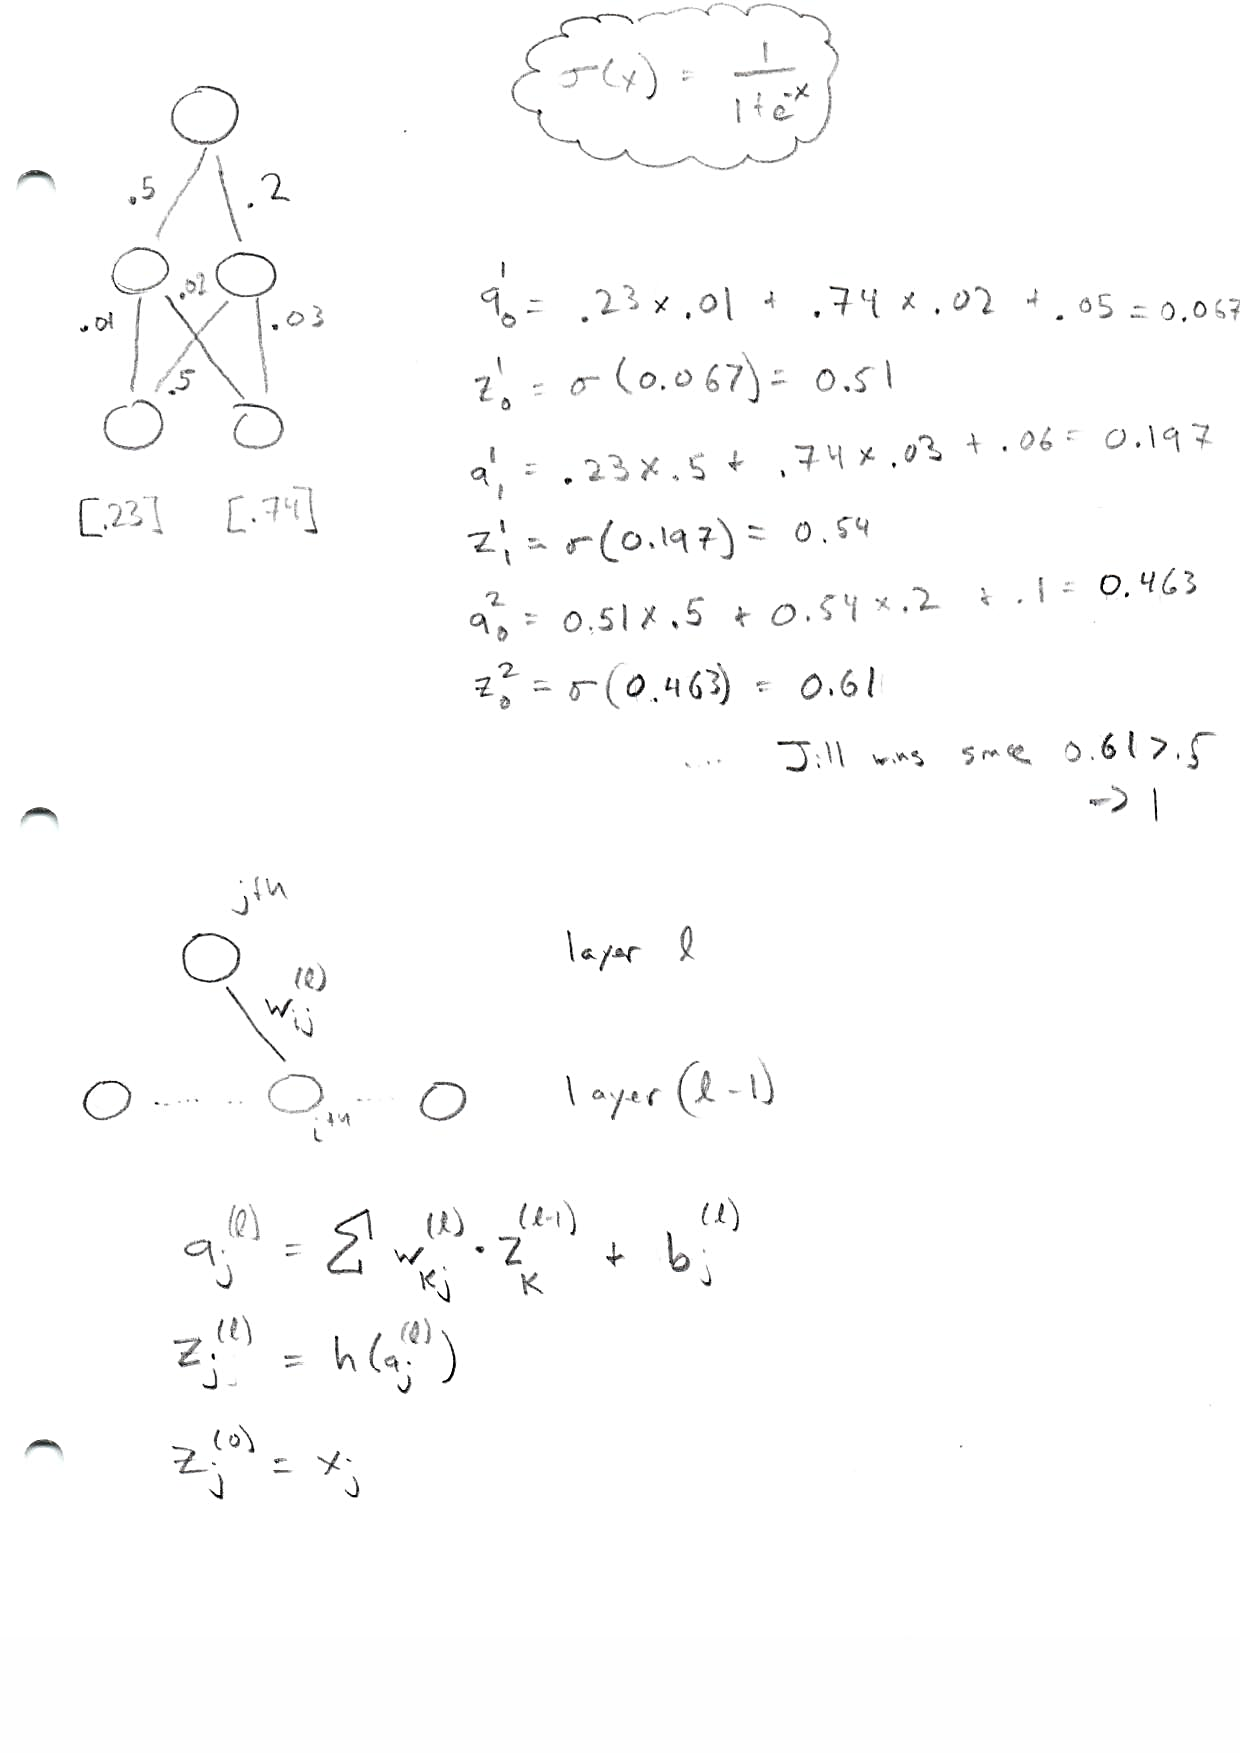 σ(x) = 1 / (1+e^-x)
.5 .2
.01 .02 .03
.5
[.23] [.74]
a₀¹ = .23 x .01 + .74 x .02 + .05 = 0.067
z₀¹ = σ(0.067) = 0.51
a₁¹ = .23 x .5 + .74 x .03 + .06 = 0.197
z₁¹ = σ(0.197) = 0.54
a₀² = 0.51 x .5 + 0.54 x .2 + .1 = 0.463
z₀² = σ(0.463) = 0.61
.... Jill wins since 0.61 > .5
-> 1
jth
layer l
w_ij^(l)
layer (l-1)
ith
a_j^(l) = Σ w_kj^(l) · z_k^(l-1) + b_j^(l)
z_j^(l) = h(a_j^(l))
z_j^(0) = x_j